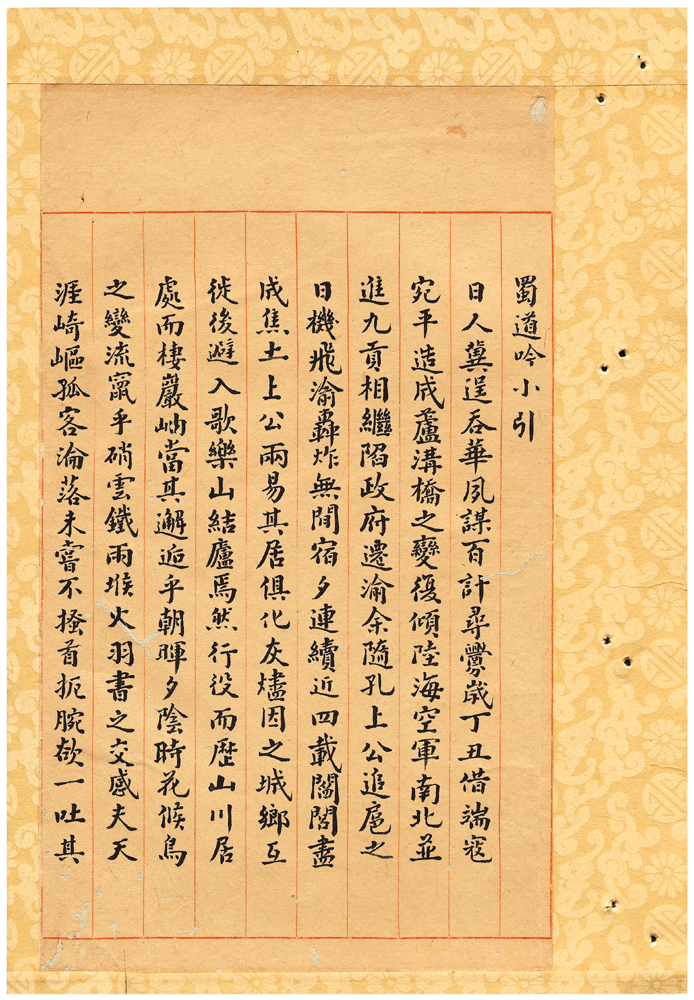 蜀道吟小引
日人冀逞吞華夙謀百計尋釁歲丁丑借端寇
宛平造成蘆溝橋之變復傾陸海空軍南北並
進九貢相繼陷政府遷渝余隨孔上公追扈之
日機飛渝轟炸無間宿夕連續近四載闤闠盡
成焦土上公兩易其居俱化灰燼因之城鄉互
徙後避入歌樂山結廬焉然行役而歷山川居
處而棲巖岫當其邂逅乎朝暉夕陰時花候鳥
之變流竄乎硝雲鐵雨堠火羽書之交感夫天
涯崎嶇孤客淪落未嘗不搔首扼腕欲一吐其